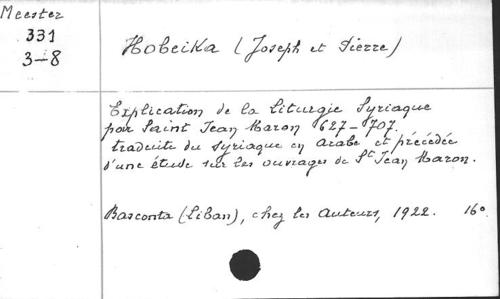 Meester
331
3-8
Hobeika (Joseph et Pierre)
Explication de la Liturgie Syriaque
par Saint Jean Maron 627-707.
traduite du syriaque en arabe et précédée
d'une étude sur les ouvrages de St Jean Maron.
Basconta (Liban), chez les Auteurs, 1922. 16°